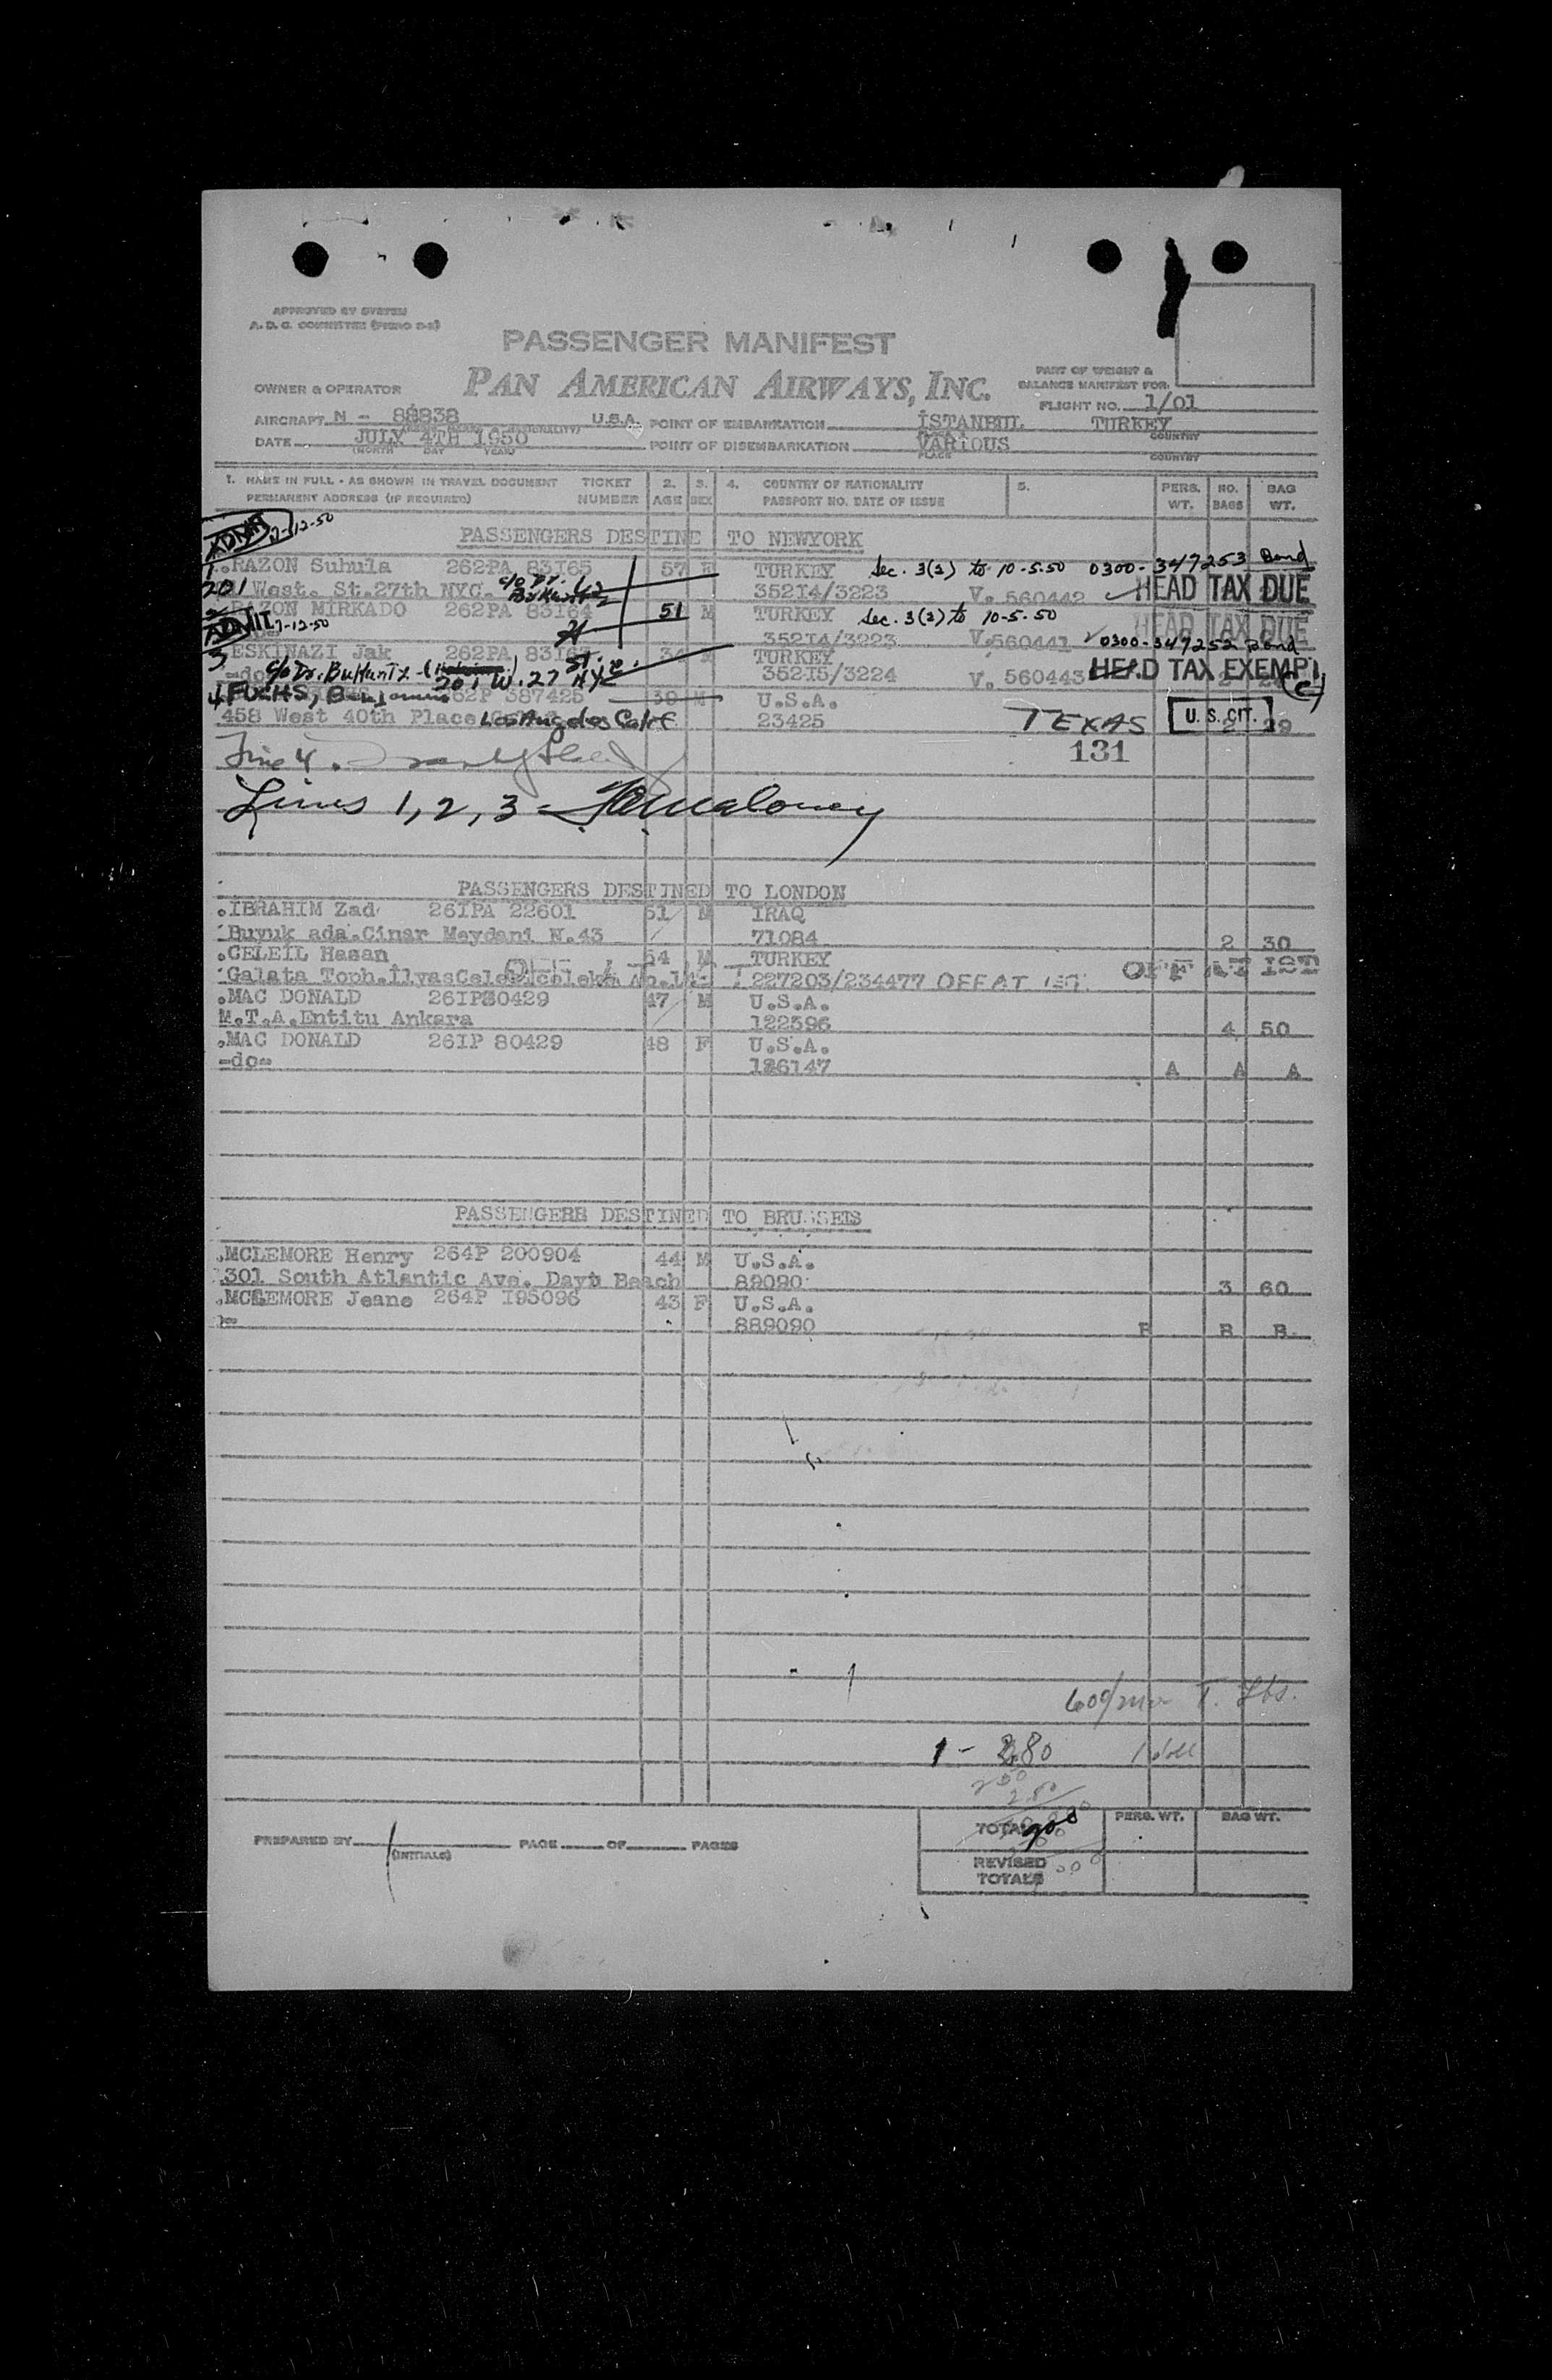 APPROVED BY SYSTEM
PASSENGER MANIFEST
PAN AMERICAN AIRWAYS, INC.
OWNER & OPERATOR
PART OF WEIGHT &
BALANCE MANIFEST FOR
FLIGHT NO. 1/01
AIRCRAFT N - 88838 U.S.A. POINT OF EMBARKATION İSTANBUL TURKEY
DATE JULY 4TH 1950 POINT OF DISEMBARKATION VARIOUS
(MONTH DAY YEAR) PLACE COUNTRY
1. NAME IN FULL - AS SHOWN IN TRAVEL DOCUMENT TICKET 2. 3. 4. COUNTRY OF NATIONALITY 5. PERS. NO. BAG
PERMANENT ADDRESS (IF REQUIRED) NUMBER AGE SEX PASSPORT NO. DATE OF ISSUE WT. BAGS WT.
ADMIT 7-12-50
PASSENGERS DESTINE TO NEWYORK
1. RAZON Suhula 262PA 83I65 57 TURKEY Sec. 3(2) to 10-5-50 0300-347253 Bond
201 West. St.27th NYC. c/o Dr. 352I4/3223 V. 560442 HEAD TAX DUE
2 RAZON MIRKADO 262PA 83I64 51 M TURKEY Sec. 3(2) to 10-5-50
ADMIT 7-12-50 352I4/3223 V.560441 HEAD TAX DUE
0300-347252 Bond
3 ESKINAZI Jak 262PA 34 TURKEY
-do- c/o Dr. 201 W. 27 St. NYC 352I5/3224 V. 560443 HEAD TAX EXEMPT (c)
4 FUCHS, Benjamin 262P 387425 39 M U.S.A.
458 West 40th Place Los Angeles Calif 23425 TEXAS U. S. CIT. 2 29
131
Line 4.
Lines 1, 2, 3 - Maloney
PASSENGERS DESTINED TO LONDON
.IBRAHIM Zad 26IPA 22601 51 M IRAQ
Buyuk ada.Cinar Meydani N.43 71084 2 30
.CELEİL Hasan 54 M TURKEY
Galata Toph. 227203/234477 OFF AT IST OFF AT IST
.MAC DONALD 26IP80429 47 M U.S.A.
M.T.A.Entitu Ankara 122596 4 50
.MAC DONALD 26IP 80429 48 F U.S.A.
-do- 126147 A A A
PASSENGERS DESTINED TO BRUSSELS
.MCLEMORE Henry 264P 200904 44 M U.S.A.
301 South Atlantic Ave. Dayt Beach 89090 3 60
.MCLEMORE Jeane 264P I95096 43 F U.S.A.
889090 B B B
1 - 2.80
TOTAL PERS. WT. BAG WT.
PREPARED BY (INITIALS) PAGE OF PAGES
REVISED
TOTALS